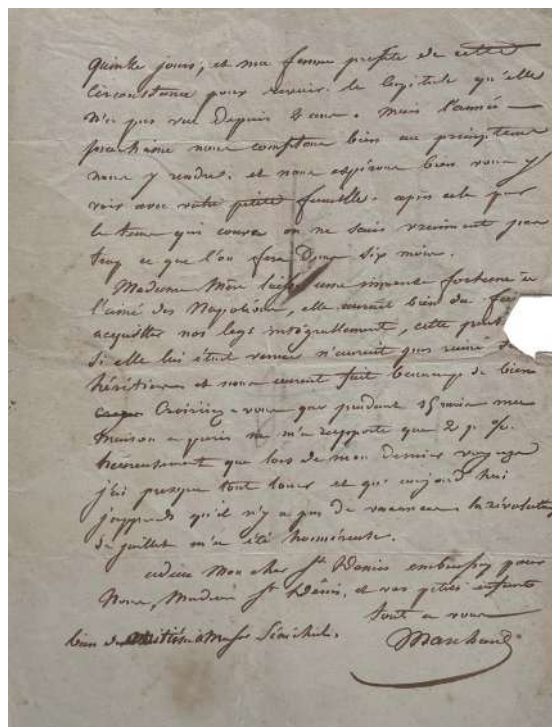 quinze jours, et ma femme profite de cette
circonstance pour revoir la Capitale qu'elle
n'a pas vue depuis 2 ans. mais l'année
prochaine nous comptons bien au printemps
nous y rendre. et nous espérons bien vous y
voir avec votre petite famille. après cela par
le tems qui courre on ne sais vraiment pas
trop ce que l'on fera dans six mois.
Madame Mère laisse une immense fortune à
l'ainé des Napoléon, elle aurait bien du
acquitter nos legs intégrallement, cette
si elle lui étoit venue n'auroit pas ruiné
héritiers et nous auroit fait beaucoup de bien
Croiriez-vous que pendant 15 mois ma
maison a paris ne m'a rapporté que 2 p. %.
heureusement que lors de mon dernier voyage
j'ai presque tout loué et qu'aujourd'hui
j'apprends qu'il n'y a pas de vacances. la révolution
de juillet m'a été honnéreuse.
adieu mon cher St Denis embrassez pour
Nous, Madame St Denis, et vos petits enfants
tout a vous
bien d'amitiés à
Marchand